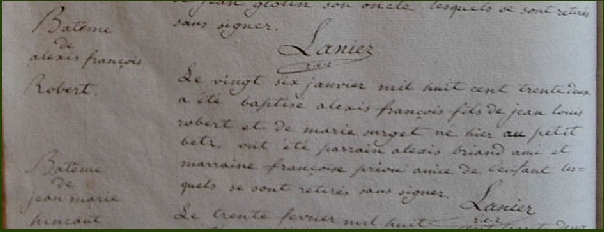 jean gloun son oncle lesquels se sont retirés
sans signer.
Lanier
rer
Bateme
de
alexis françois
Robert.
Le vingt six janvier mil huit cent trente deux
a été baptisé alexis françois fils de jean louis
robert et de marie surget né hier au petit
betz, ont été parrain alexis briand ami et
marraine françoise priou amie de l'enfant les=
quels se sont retirés sans signer.
Lanier
rer
Bateme
de
jean marie
Le trente fevrier mil huit cent trente deux